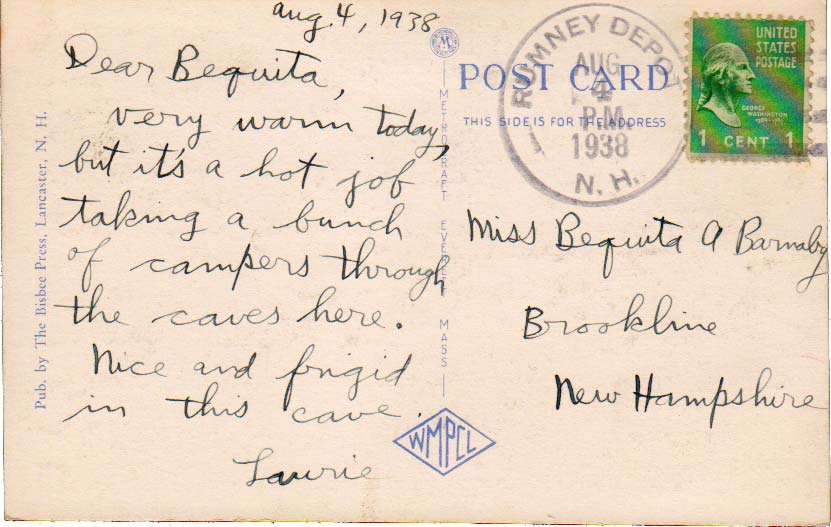 Aug. 4, 1938
Dear Bequita,
very warm today,
but it's a hot job
taking a bunch
of campers through
the caves here.
Nice and frigid
in this cave.
Laurie
Pub. by The Bisbee Press, Lancaster, N. H.
M
METROCRAFT EVERETT MASS
WMPCL
POST CARD
THIS SIDE IS FOR THE ADDRESS
RUMNEY DEPOT
AUG
4
P.M.
1938
N. H.
UNITED
STATES
POSTAGE
GEORGE
WASHINGTON
1 CENT 1
Miss Bequita A Barnaby
Brookline
New Hampshire